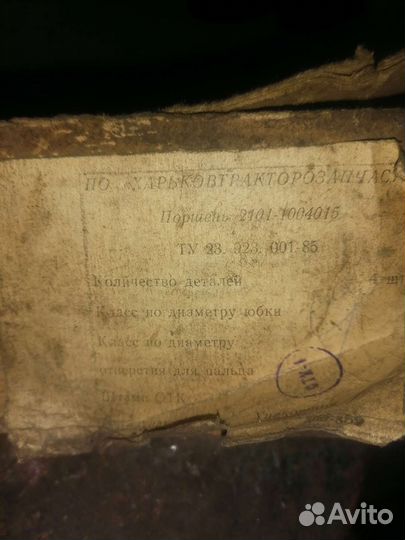 ПО «ХАРЬКОВТРАКТОРОЗАПЧАС
Поршень 2101-1004015
ТУ 23. 323. 001-85
Количество деталей 4 шт
Класс по диаметру юбки
Класс по диаметру
отверстия для пальца
Штамп ОТК
Avito